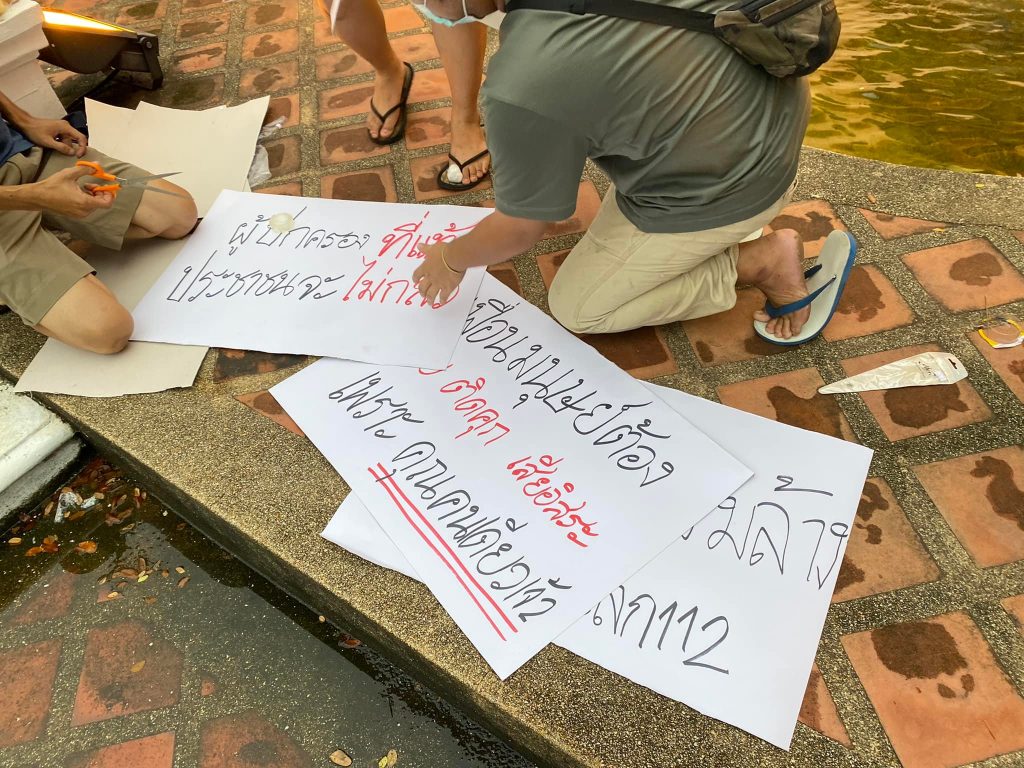 ผู้ปกครอง ที่แท้
ประชาชนจะ ไม่กลัว
เพื่อนมนุษย์ต้อง
ติดคุก เสียอิสระ
เพราะ คุณคนเดียวเท่า
ล้าง
112